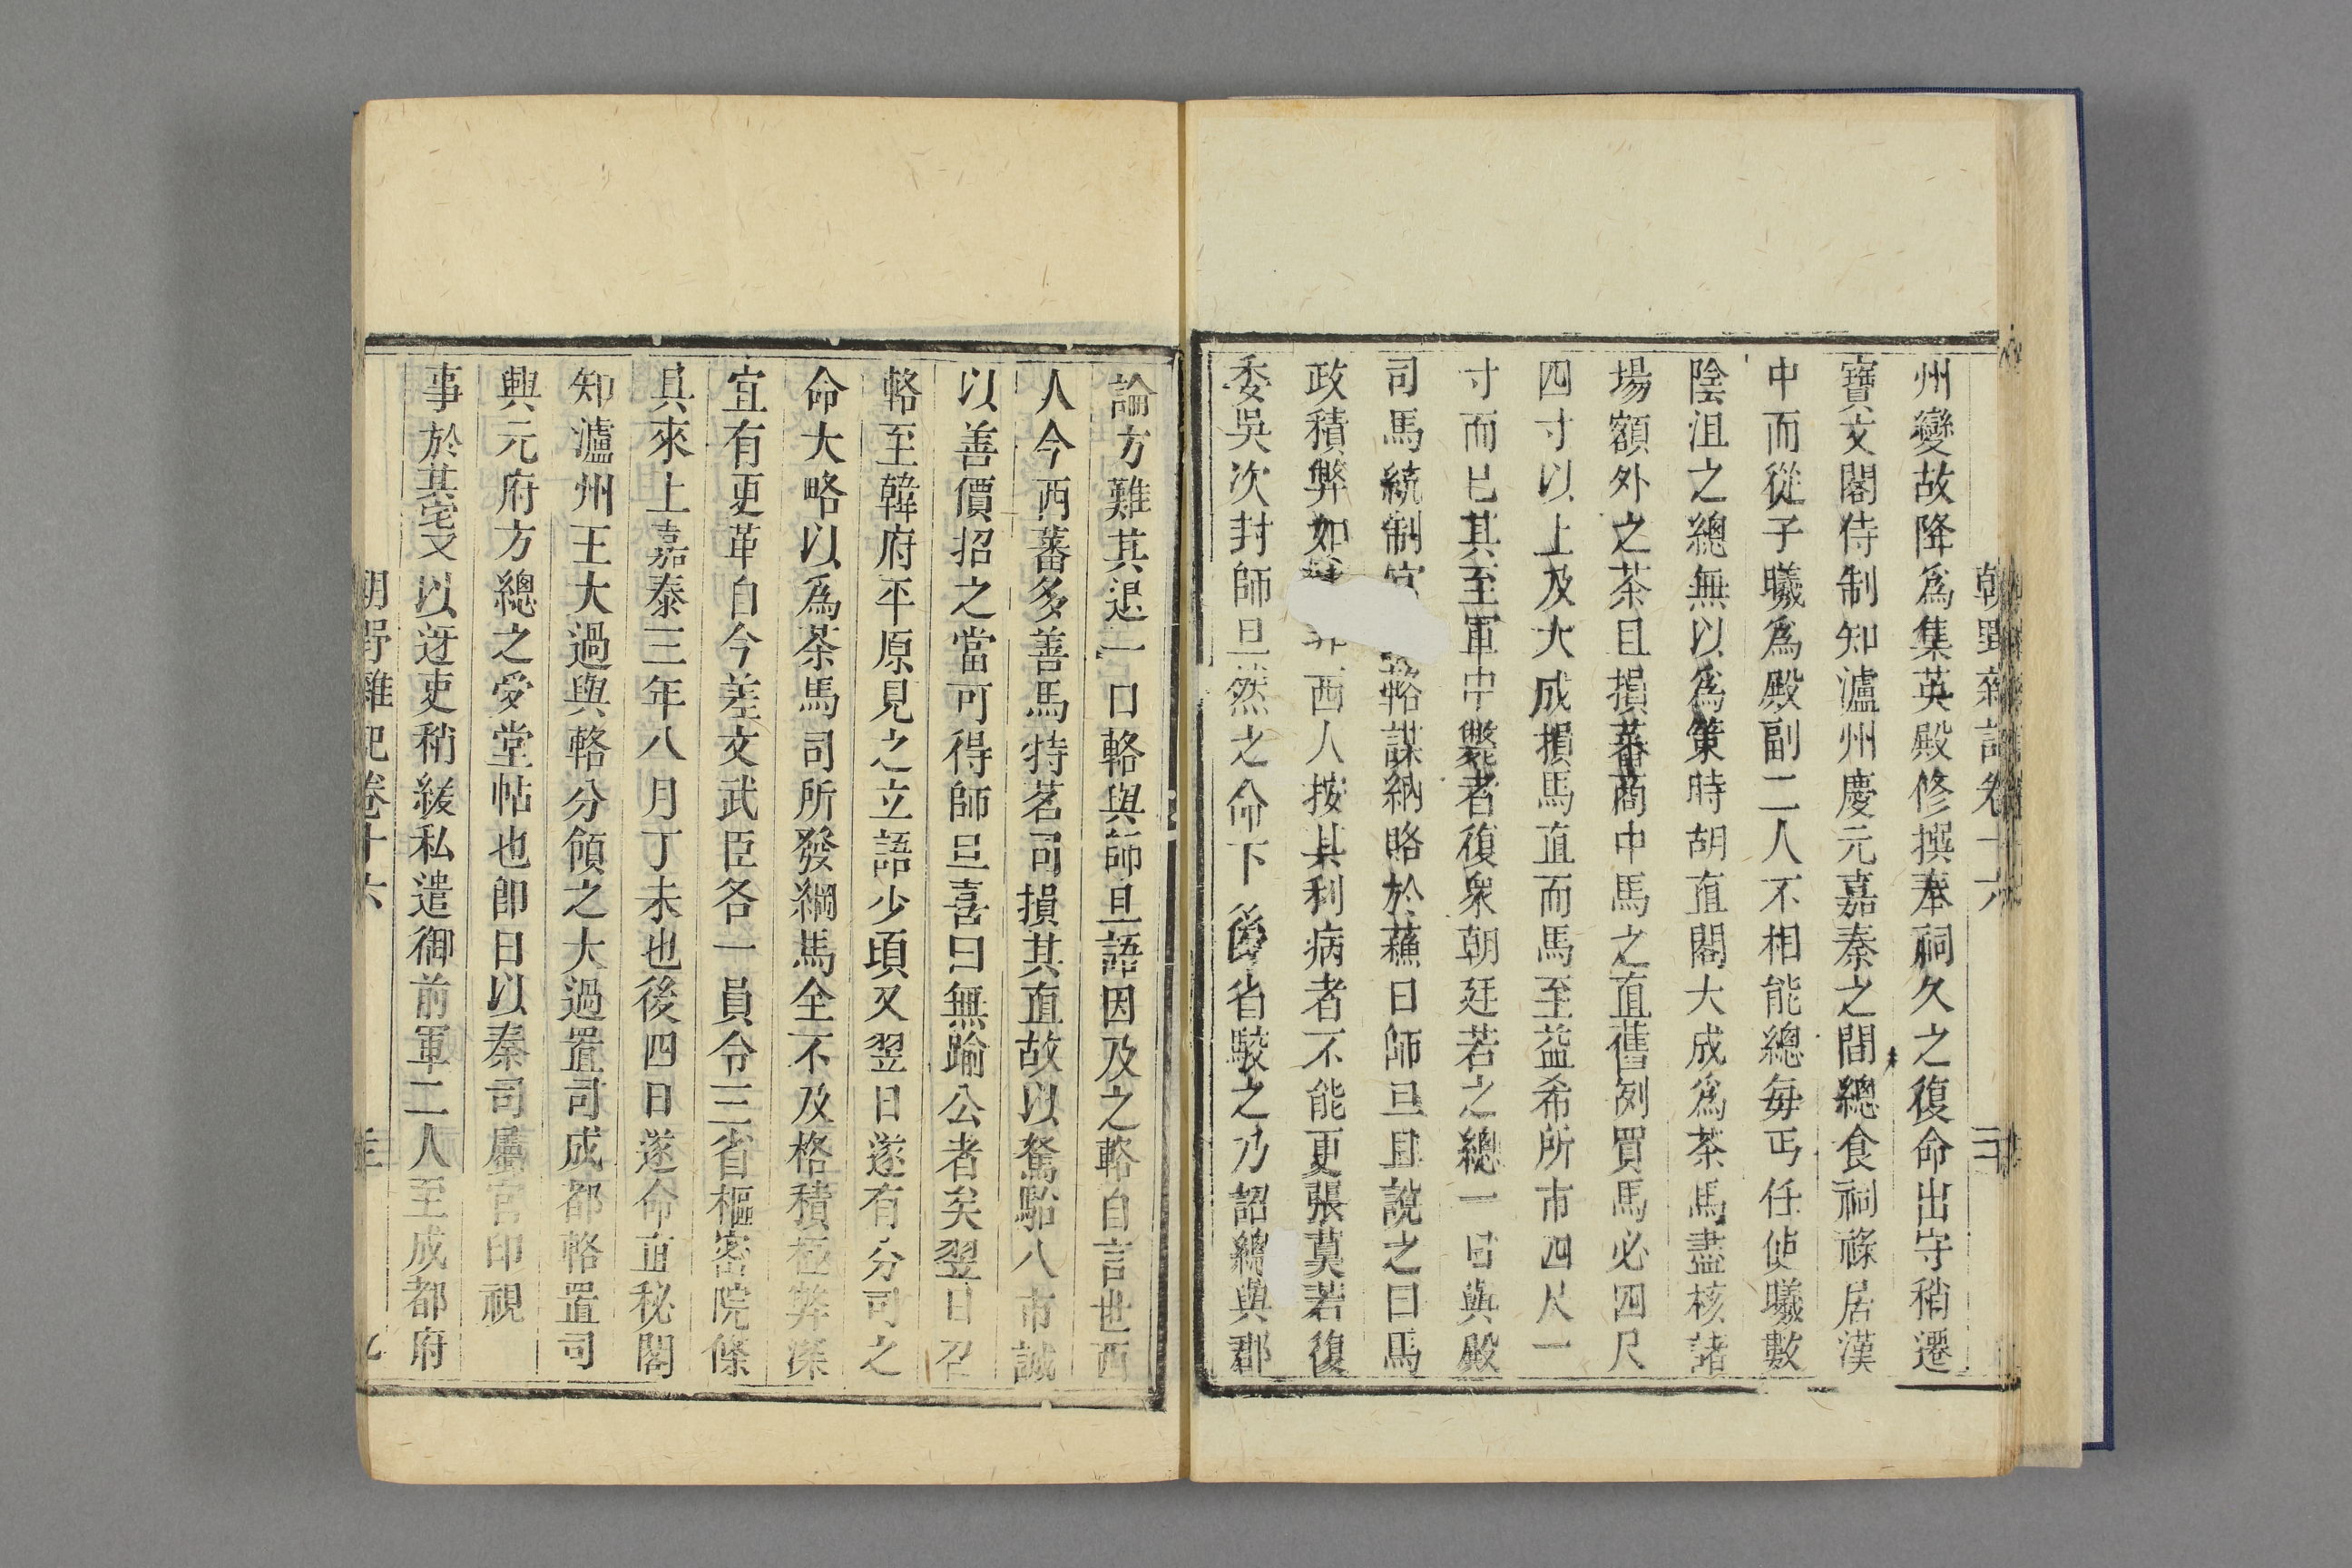 朝野雜記卷十六
州變故降爲集英殿修撰奉祠久之復命出守稍遷
寶文閣侍制知瀘州慶元嘉泰之間總食祠祿居漢
中而從子曦爲殿副二人不相能總每丐任使曦數
陰沮之總無以爲策時胡直閣大成爲茶馬盡核諸
場額外之茶且損蕃商中馬之直舊例買馬必四尺
四寸以上及大成損馬直而馬至益希所市四尺一
寸而已其至軍中斃者復衆朝廷若之總一日與殿
司馬統制官輅謀納賂於蘓曰師旦且說之曰馬
政積弊如 非西人按其利病者不能更張莫若復
委吳次封師旦然之命下後省駮之乃詔總與郡
論方難其退一口輅與師旦語因及之輅自言世西
人今西蕃多善馬特茗司損其直故以駑駘入市誠
以善價招之當可得師旦喜曰無踰公者矣翌日召
輅至韓府平原見之立語少頃又翌日遂有分司之
命大略以爲茶馬司所發綱馬全不及格積極弊深
宜有更革自今差文武臣各一員令三省樞密院條
具來上嘉泰三年八月丁未也後四日遂命直秘閣
知瀘州王大過與輅分領之大過置司成都輅置司
興元府方總之愛堂帖也卽日以秦司屬官印視
事於其宅又以迓吏稍緩私遣御前軍二人至成都府
朝野雜記卷十六